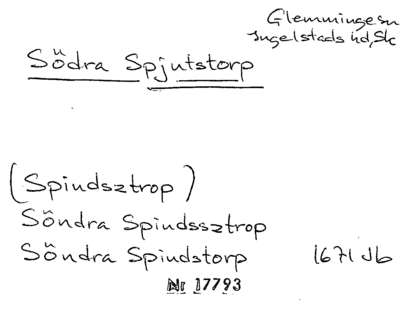 Glemminge sn
Ingelstads hd, Sk
Södra Spjutstorp
(Spindsztrop)
Söndra Spindssztrop
Söndra Spindstorp 1671 Jb
Nr 17793